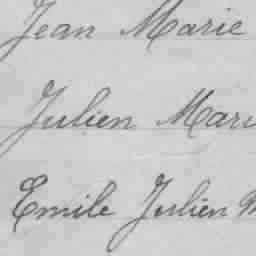 Jean Marie
Julien Mari
Emile Julien M